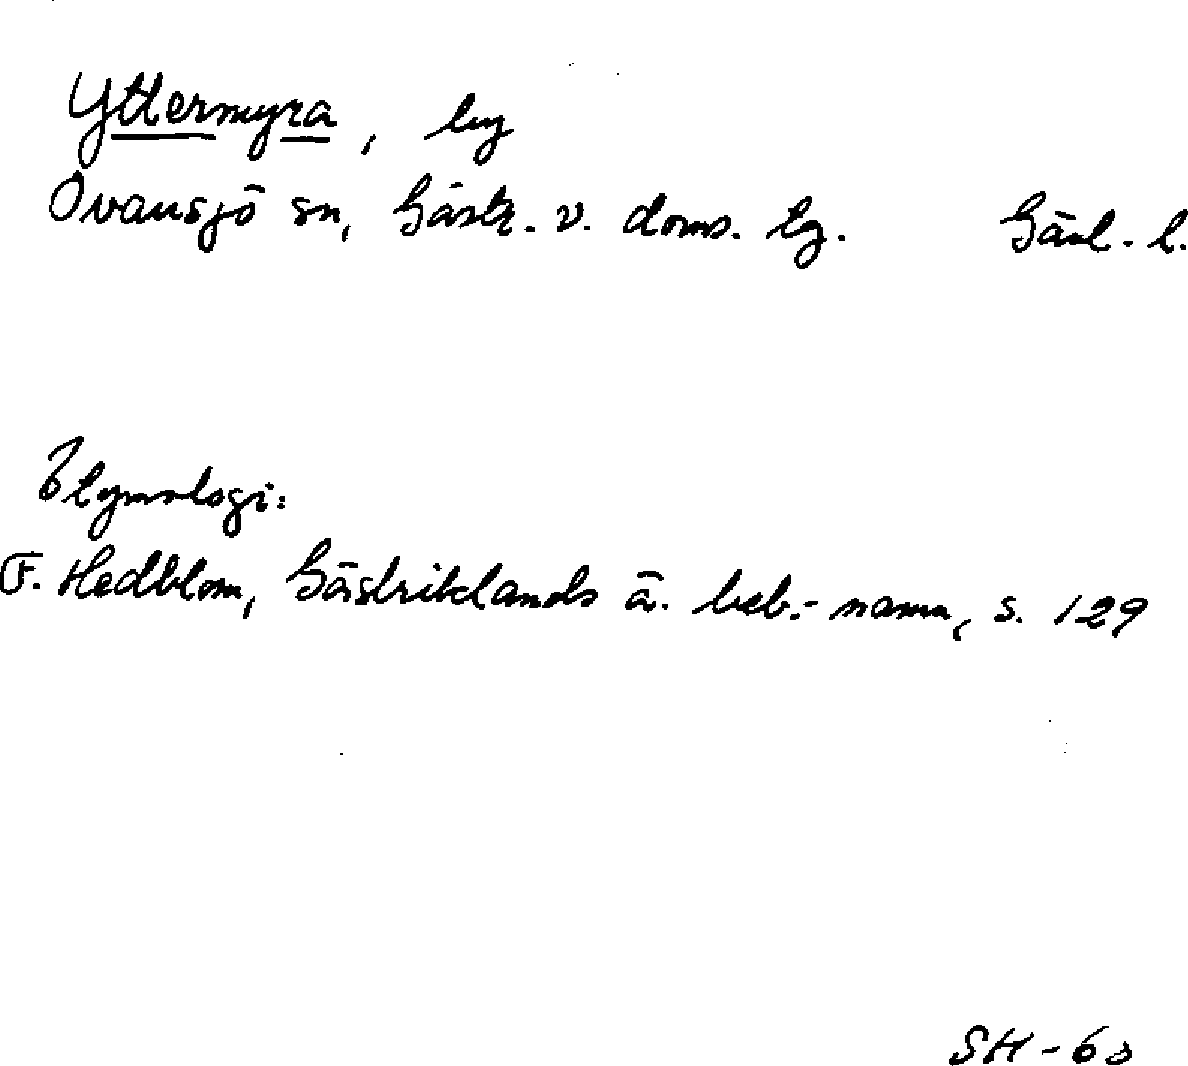 Yttermyra, by
Ovansjö sn, Gästr. v. doms. tg. Gävl. l.
Etymologi:
F. Hedblom, Gästriklands ä. beb.-namn, s. 129
SH-60